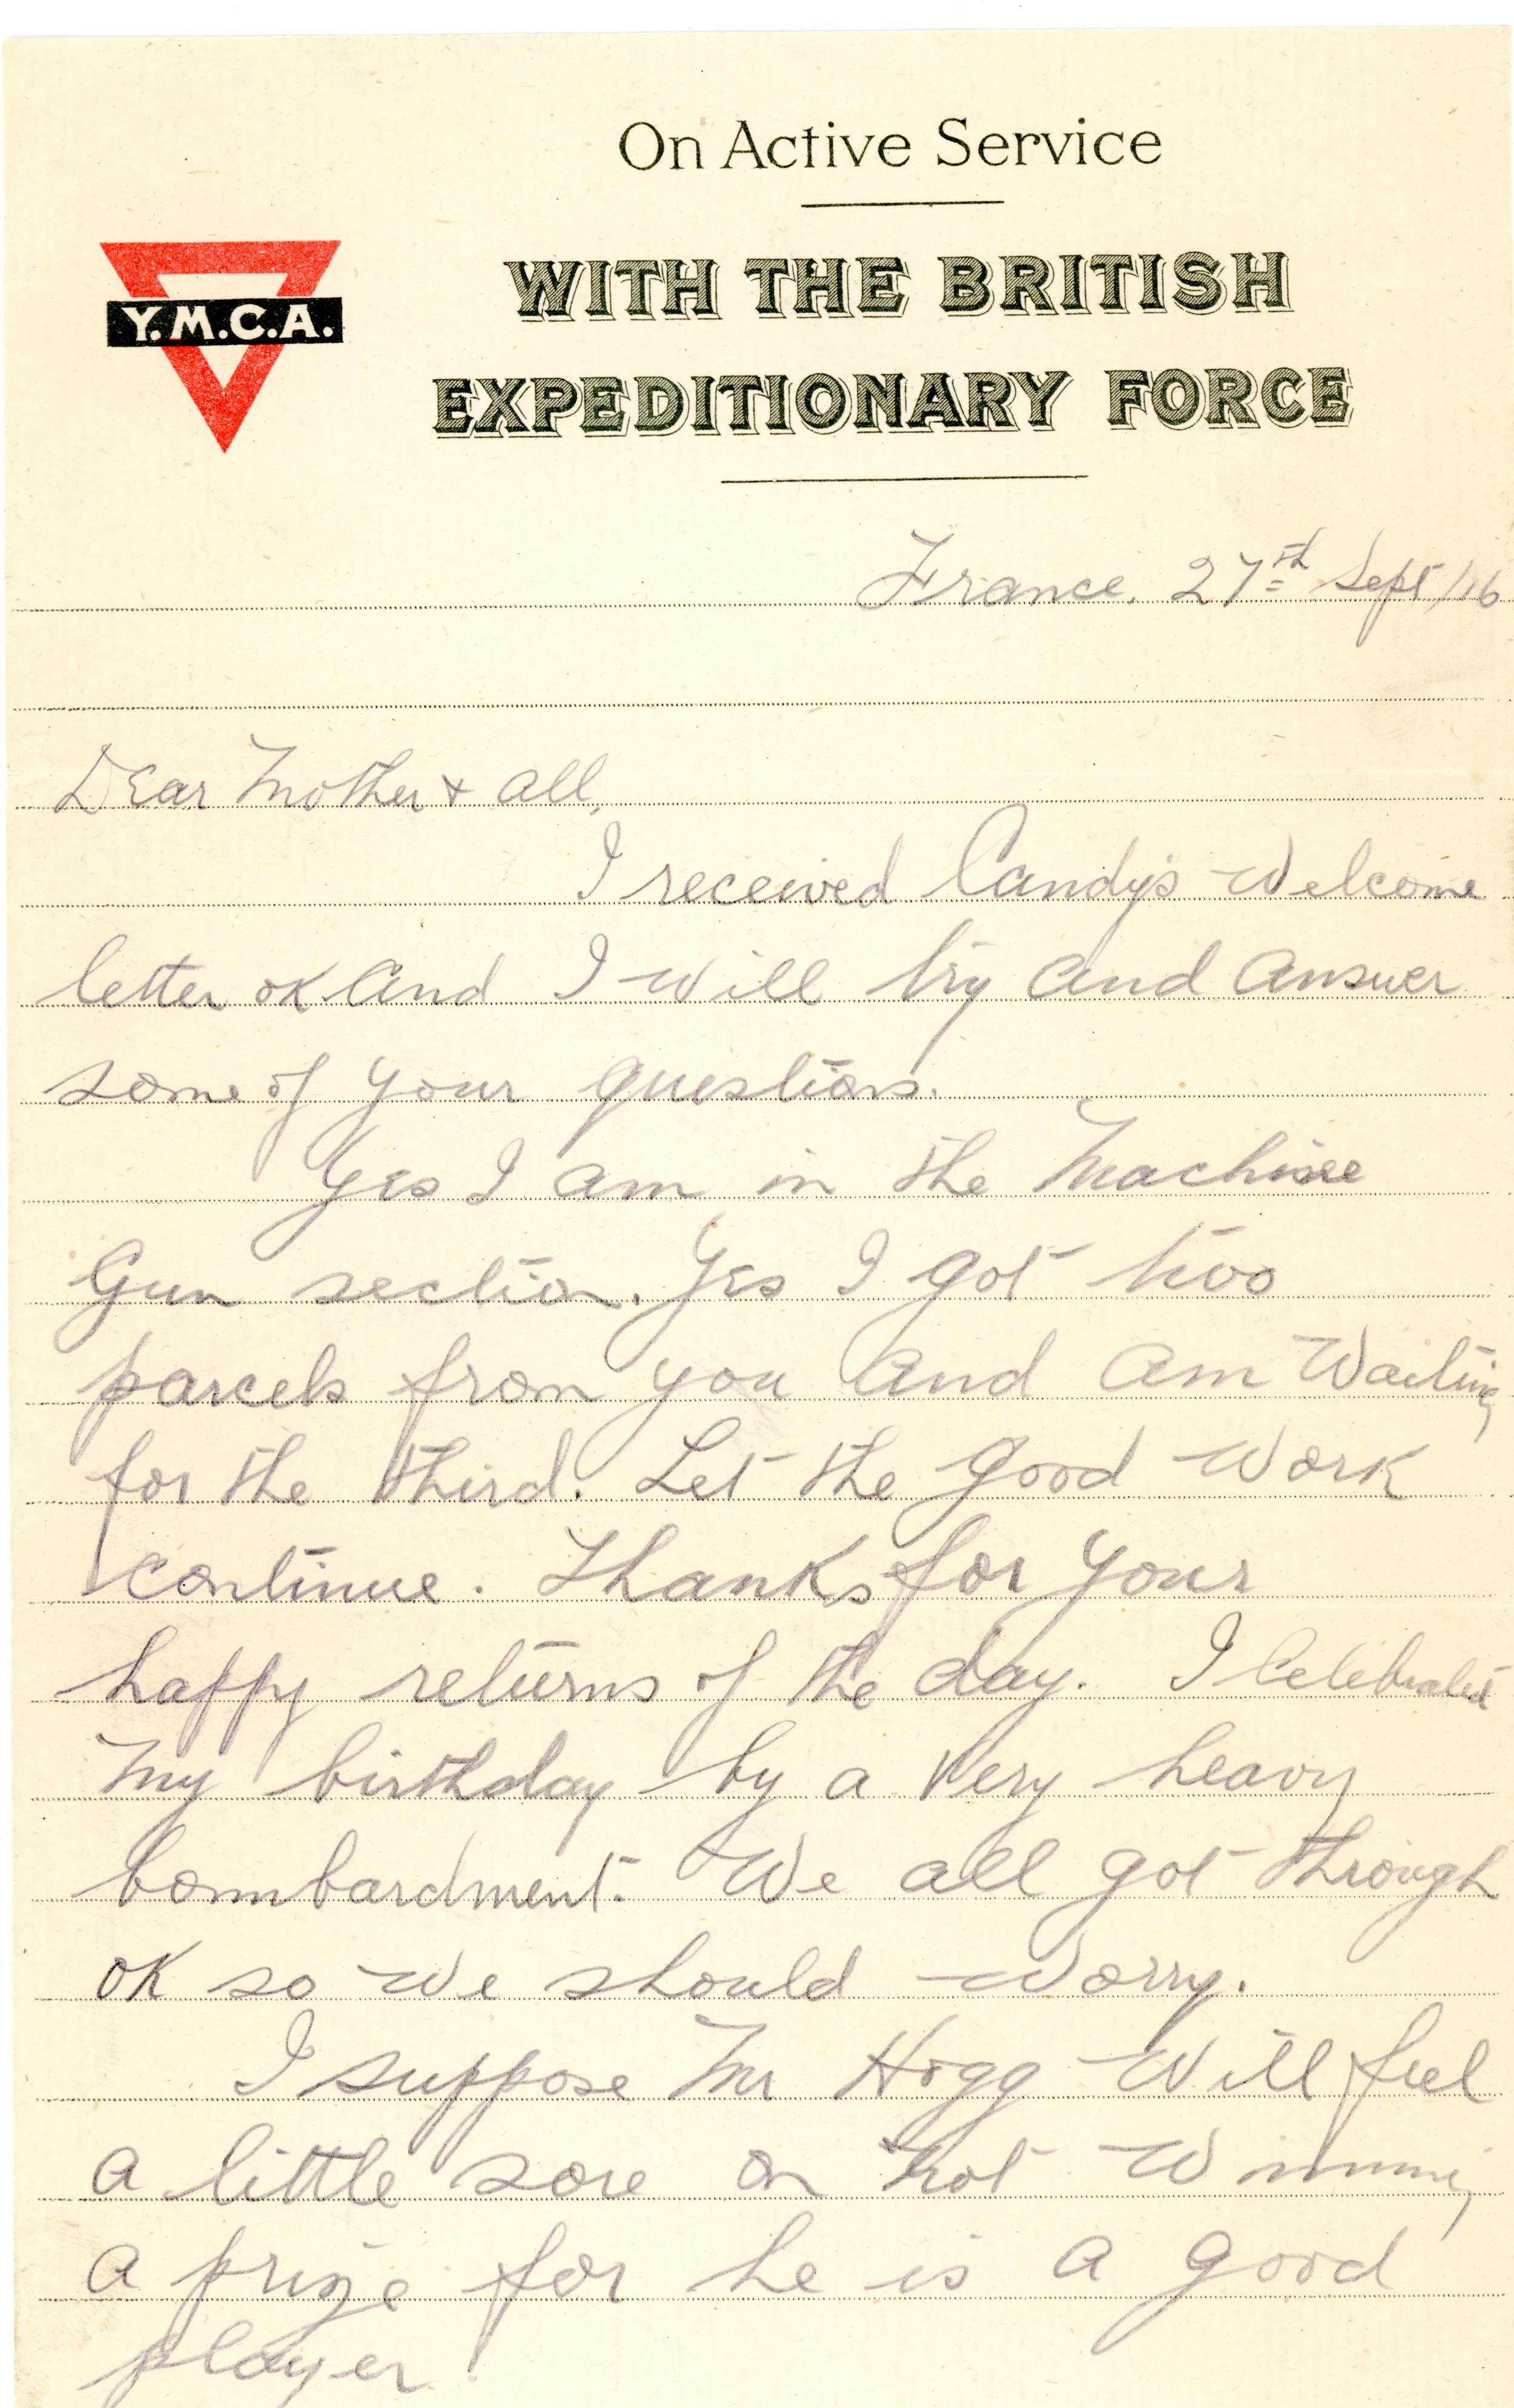 On Active Service
WITH THE BRITISH
Y.M.C.A.
EXPEDITIONARY FORCE
France, 27th Sept/16
Dear Mother + all,
I received Candy's Welcome
letter OK and I will try and answer
some of your questions.
Yes I am in the Machine
Gun section. Yes I got two
parcels from you and am waiting
for the third. Let the good work
continue. Thanks for your
happy returns of the day. I celebrated
my birthday by a very heavy
bombardment. We all got through
OK so we should worry.
I suppose Mr Hogg will feel
a little sore on not winning
a prize for he is a good
player.